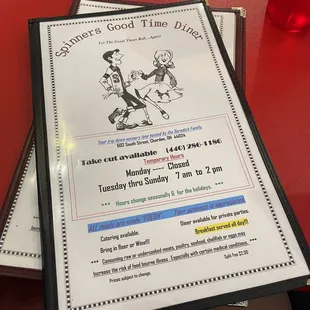 Spinners Good Time Diner
Let The Good Times Roll...Again!
Your trip down memory lane hosted by the Sorodich Family.
602 South Street, Chardon, OH 44024
Take out available (440) 286-1186
Temporary Hours
Monday ---- Closed
Tuesday thru Sunday 7 am to 2 pm
*** Hours change seasonally & for the holidays. ***
All meals are made "FRESH" Your patience is appreciated.
Catering available. Diner available for private parties.
Bring in Beer or Wine!!! Breakfast served all day!!!
*** Consuming raw or undercooked meats, poultry, seafood, shellfish or eggs may
Increase the risk of food bourne illness, Especially with certain medical conditions. ***
Prices subject to change. Split Fee $2.00